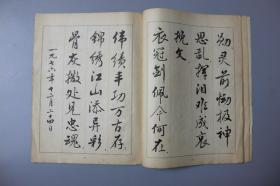 勋灵前恸极神
思乱挥泪非成哀
挽文
衣冠剑佩今何在
伟绩丰功万古存
锦绣江山添异彩
骨灰撒处见忠魂
一九七六年十二月二十四日